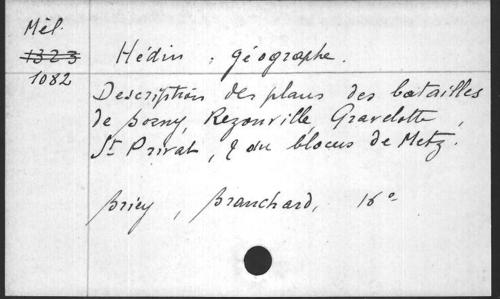 Mél.
1323
1082
Hédin, géographe.
Description des plans des batailles
de Borny, Rezonville, Gravelotte,
St Privat, & du blocus de Metz.
Briey, Branchard, 16°